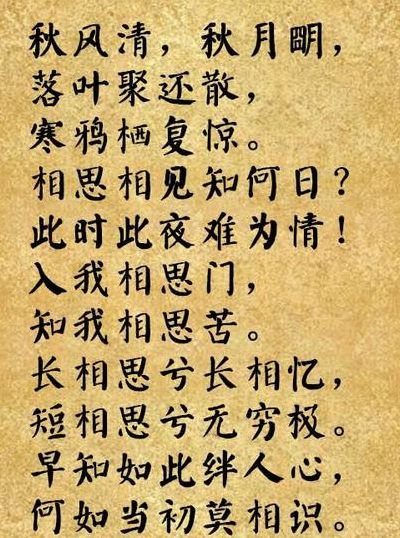 秋风清，秋月明，
落叶聚还散，
寒鸦栖复惊。
相思相见知何日？
此时此夜难为情！
入我相思门，
知我相思苦。
长相思兮长相忆，
短相思兮无穷极。
早知如此绊人心，
何如当初莫相识。